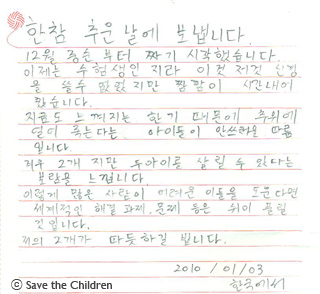 한참 추운 날에 보냅니다.
12월 중순 부터 짜기 시작했습니다.
이제는 수험생인 지라 이것 저것 신경
을 쓸수 없었지만 짬짬이 시간내어
짰습니다.
지금도 느껴지는 한기 때문에 추위에
떨어 죽는다는 아이들이 안쓰러울 따름
입니다.
겨우 2개 지만 두아이를 살릴 수 있다는
보람을 느낍니다.
이렇게 많은 사람이 어려운 이들을 도운다면
세계적인 해결 과제. 문제 등은 쉬이 풀릴
것입니다.
저의 2개가 따듯하길 빕니다.
2010 / 01 / 03
한국에서
ⓒ Save the Children